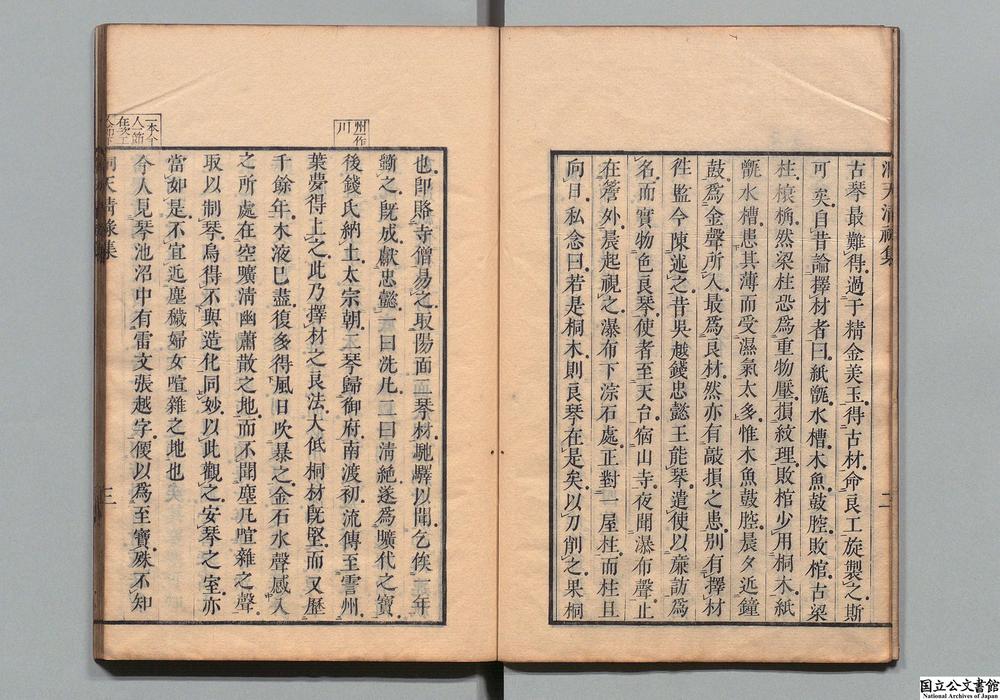 洞天清祿集
古琴最難得過于精金美玉得古材命良工旋製之斯
可矣自昔論擇材者曰紙甑水槽木魚鼓腔敗棺古梁
柱榱桷然梁柱恐爲重物壓損紋理敗棺少用桐木紙
甑水槽患其薄而受濕氣太多惟木魚鼓腔晨夕近鐘
鼓爲金聲所入最爲良材然亦有敲損之患別有擇材
徃監今陳述之昔吳越錢忠懿王能琴遣使以廉訪爲
名而實物色良琴使者至天台宿山寺夜聞瀑布聲止
在簷外晨起視之瀑布下淙石處正對一屋柱而柱且
向日私念曰若是桐木則良琴在是矣以刀削之果桐
二
也卽賂寺僧易之取陽面二琴材馳驛以聞乞俟一年
斵之旣成獻忠懿一曰洗凡二曰淸絶遂爲曠代之寶
後錢氏納土太宗朝二琴歸御府南渡初流傳至雲州
葉夢得上之此乃擇材之良法大低桐材旣堅而又歷
千餘年木液已盡復多得風日吹暴之金石水聲感入
之所處在空曠淸幽蕭散之地而不聞塵凡喧雜之聲
取以制琴烏得不與造化同妙以此觀之安琴之室亦
當如是不宜近塵穢婦女喧雜之地也
今人見琴池沼中有雷文張越字便以爲至寶殊不知
洞天清祿集
三
州作
川
国立公文書館
National Archives of Japan